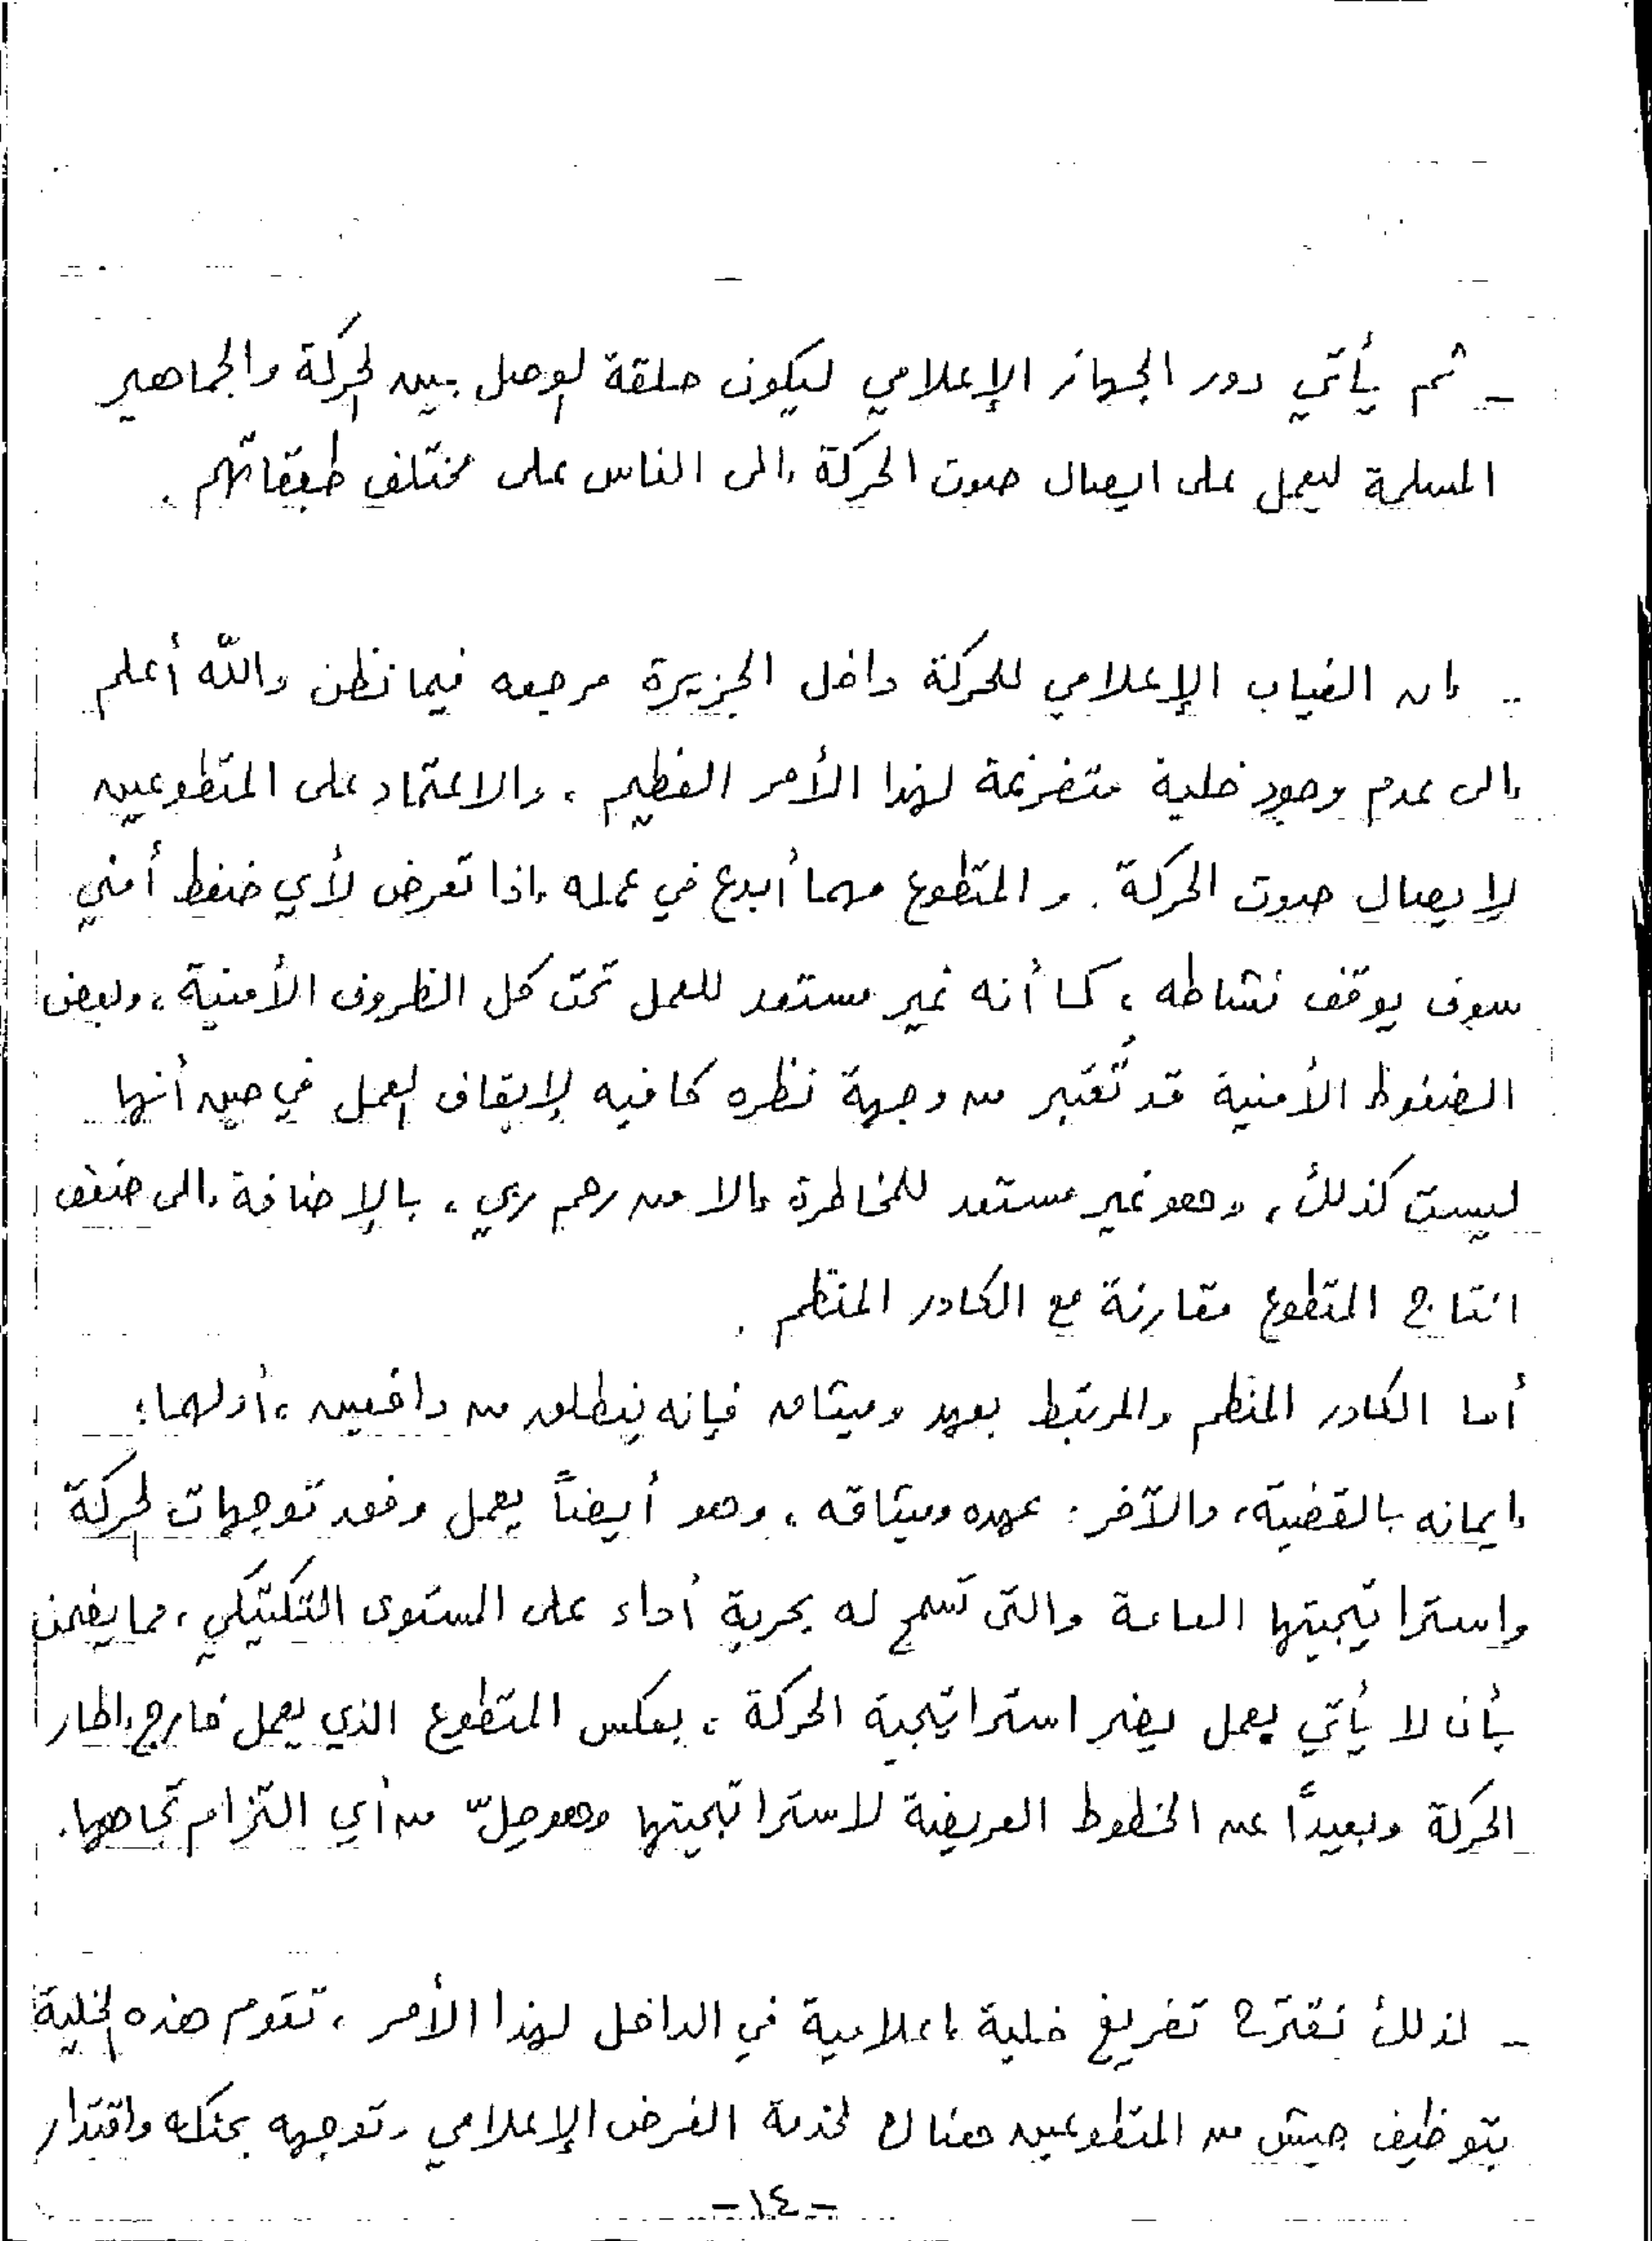 _ ثم يأتي دور الجهاز الإعلامي ليكون حلقة الوصل بين الحركة والجماهير
المسلمة ليعمل على ايصال صوت الحركة إلى الناس على مختلف طبقاتهم .
_ إن الغياب الإعلامي للحركة داخل الجزيرة مرجعه فيما نظن والله أعلم
إلى عدم وجود خلية متفرغة لهذا الأمر العظيم ، والاعتماد على المتطوعين
لإيصال صوت الحركة . والمتطوع مهما أبدع في عمله إذا تعرض لأي ضغط أمني
سوف يوقف نشاطه ، كما أنه غير مستعد للعمل تحت كل الظروف الأمنية ، وبعض
الضغوط الأمنية قد تُعتبر من وجهة نظره كافيه لإيقاف العمل في حين أنها
ليست كذلك ، وهو غير مستعد للمخاطرة إلا من رحم ربي ، بالإضافة إلى ضعف
انتاج المتطوع مقارنة مع الكادر المنظم .
أما الكادر المنظم والمرتبط بعهد وميثاق فإنه ينطلق من دافعين ، أولهما :
إيمانه بالقضية ، والآخر : عهده وميثاقه ، وهو أيضاً يعمل وفق توجهات الحركة
واستراتيجيتها العامة والتي تسمح له بحرية أداء على المستوى التكتيكي ، مما يضمن
بأن لا يأتي بعمل يضر استراتيجية الحركة ، بعكس المتطوع الذي يعمل خارج إطار
الحركة وبعيداً عن الخطوط العريضة لاستراتيجيتها وهو حِلّ من أي التزام تجاهها .
_ لذلك نقترح تفريغ خلية إعلامية في الداخل لهذا الأمر ، تقوم هذه الخلية
بتوظيف جيش من المتطوعين هناك لخدمة الغرض الإعلامي وتوجهه بحنكه واقتدار
-١٤-